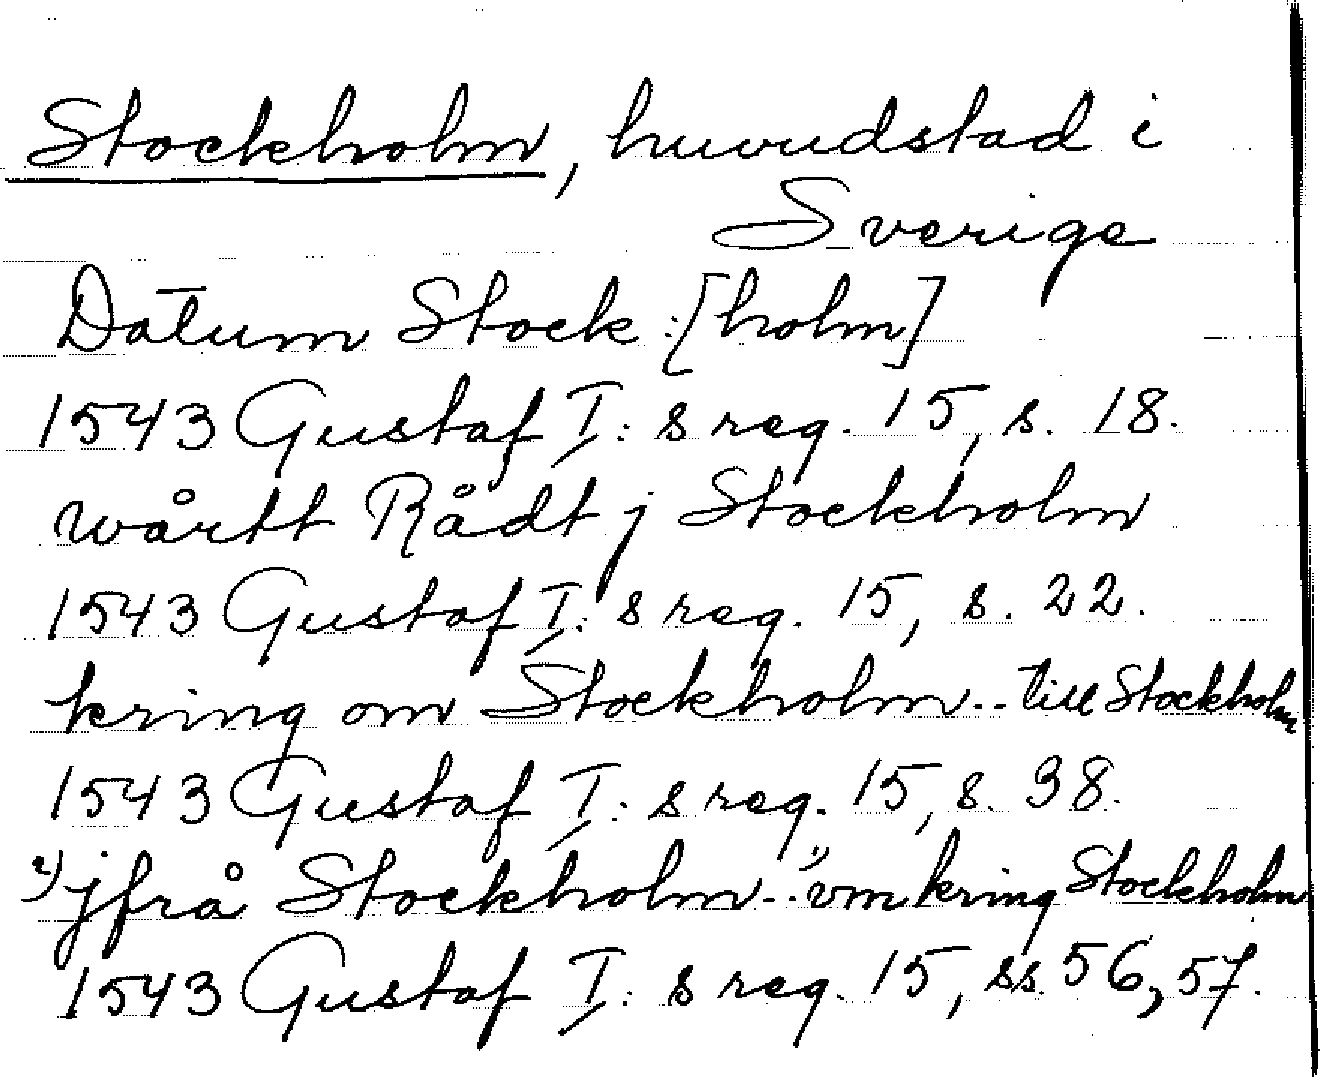 Stockholm, huvudstad i
Sverige
Datum Stock:[holm]
1543 Gustaf I:s reg. 15, s. 18.
wårtt Rådt j Stockholm
1543 Gustaf I:s reg. 15, s. 22.
kring om Stockholm.. till Stockholm
1543 Gustaf I:s reg. 15, s. 38.
2) jfrå Stockholm.. 1) vm kring Stockholm
1543 Gustaf I:s reg. 15, ss. 56, 57.